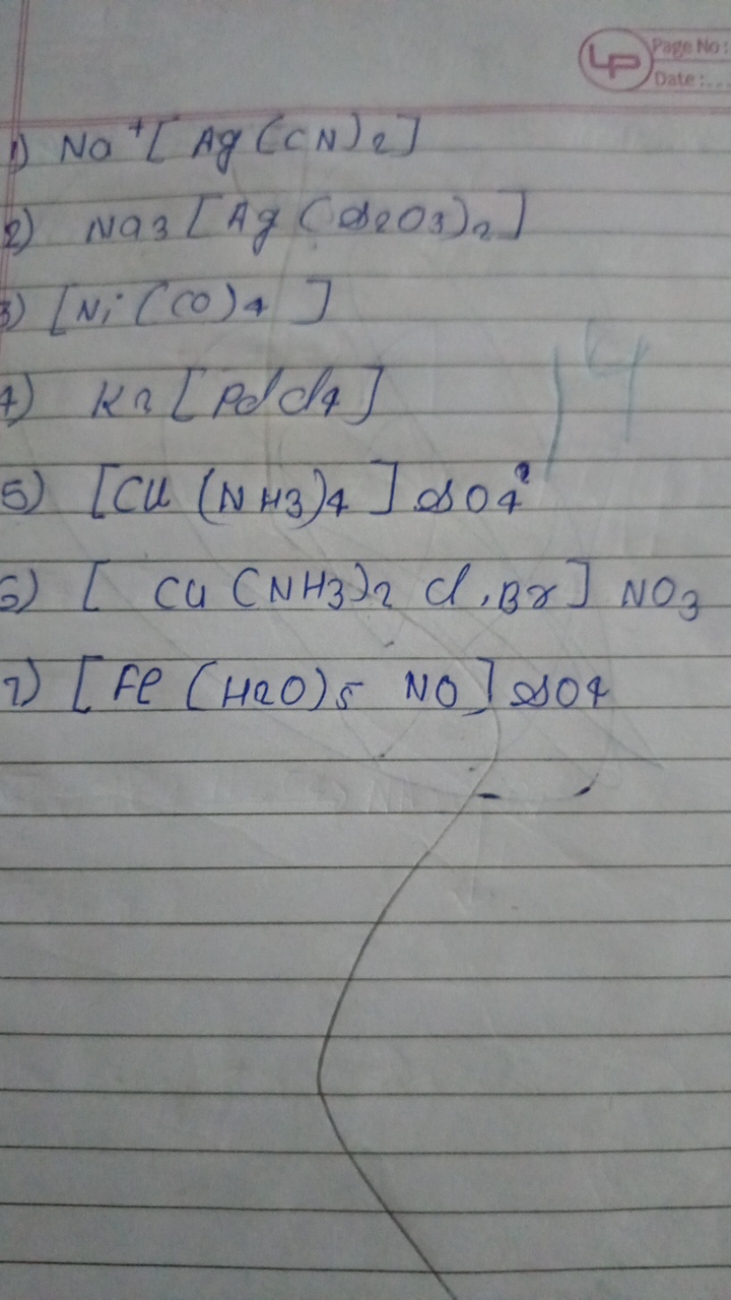 LP Page No:
Date:...
1) Na+[Ag(CN)2]
2) Na3[Ag(S2O3)2]
3) [Ni(CO)4]
4) K2[PdCl4]
5) [Cu(NH3)4]SO4
6) [Cu(NH3)2 Cl,Br] NO3
7) [Fe(H2O)5 NO]SO4